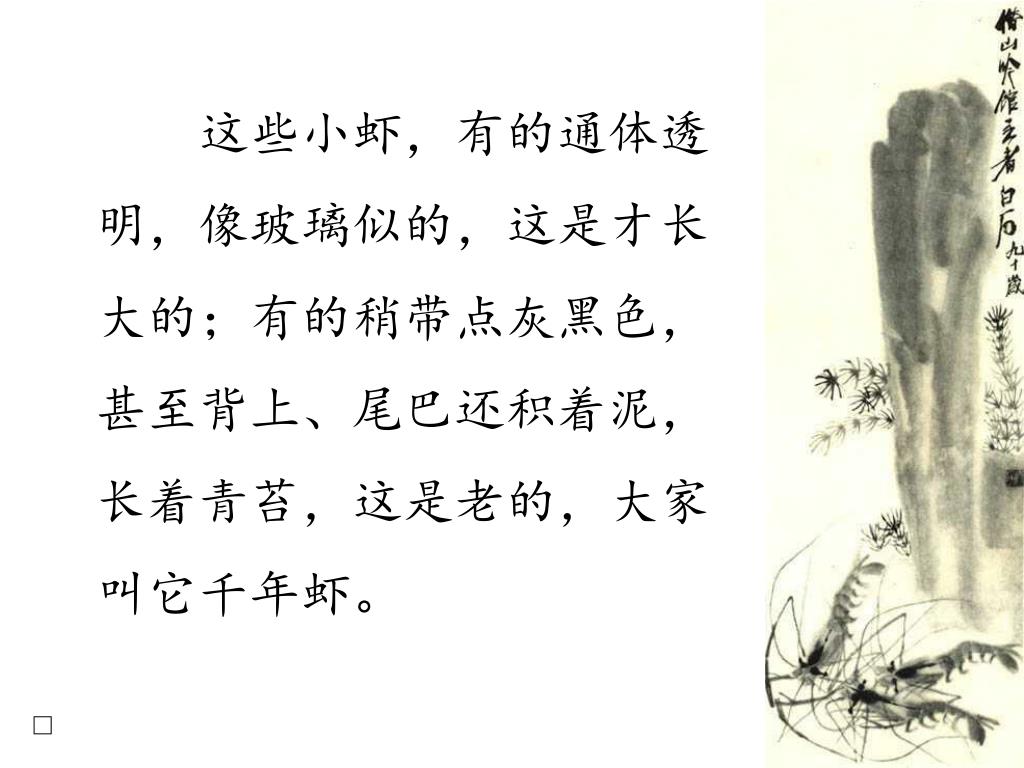 这些小虾，有的通体透
明，像玻璃似的，这是才长
大的；有的稍带点灰黑色，
甚至背上、尾巴还积着泥，
长着青苔，这是老的，大家
叫它千年虾。
借山吟馆主者白石九十岁